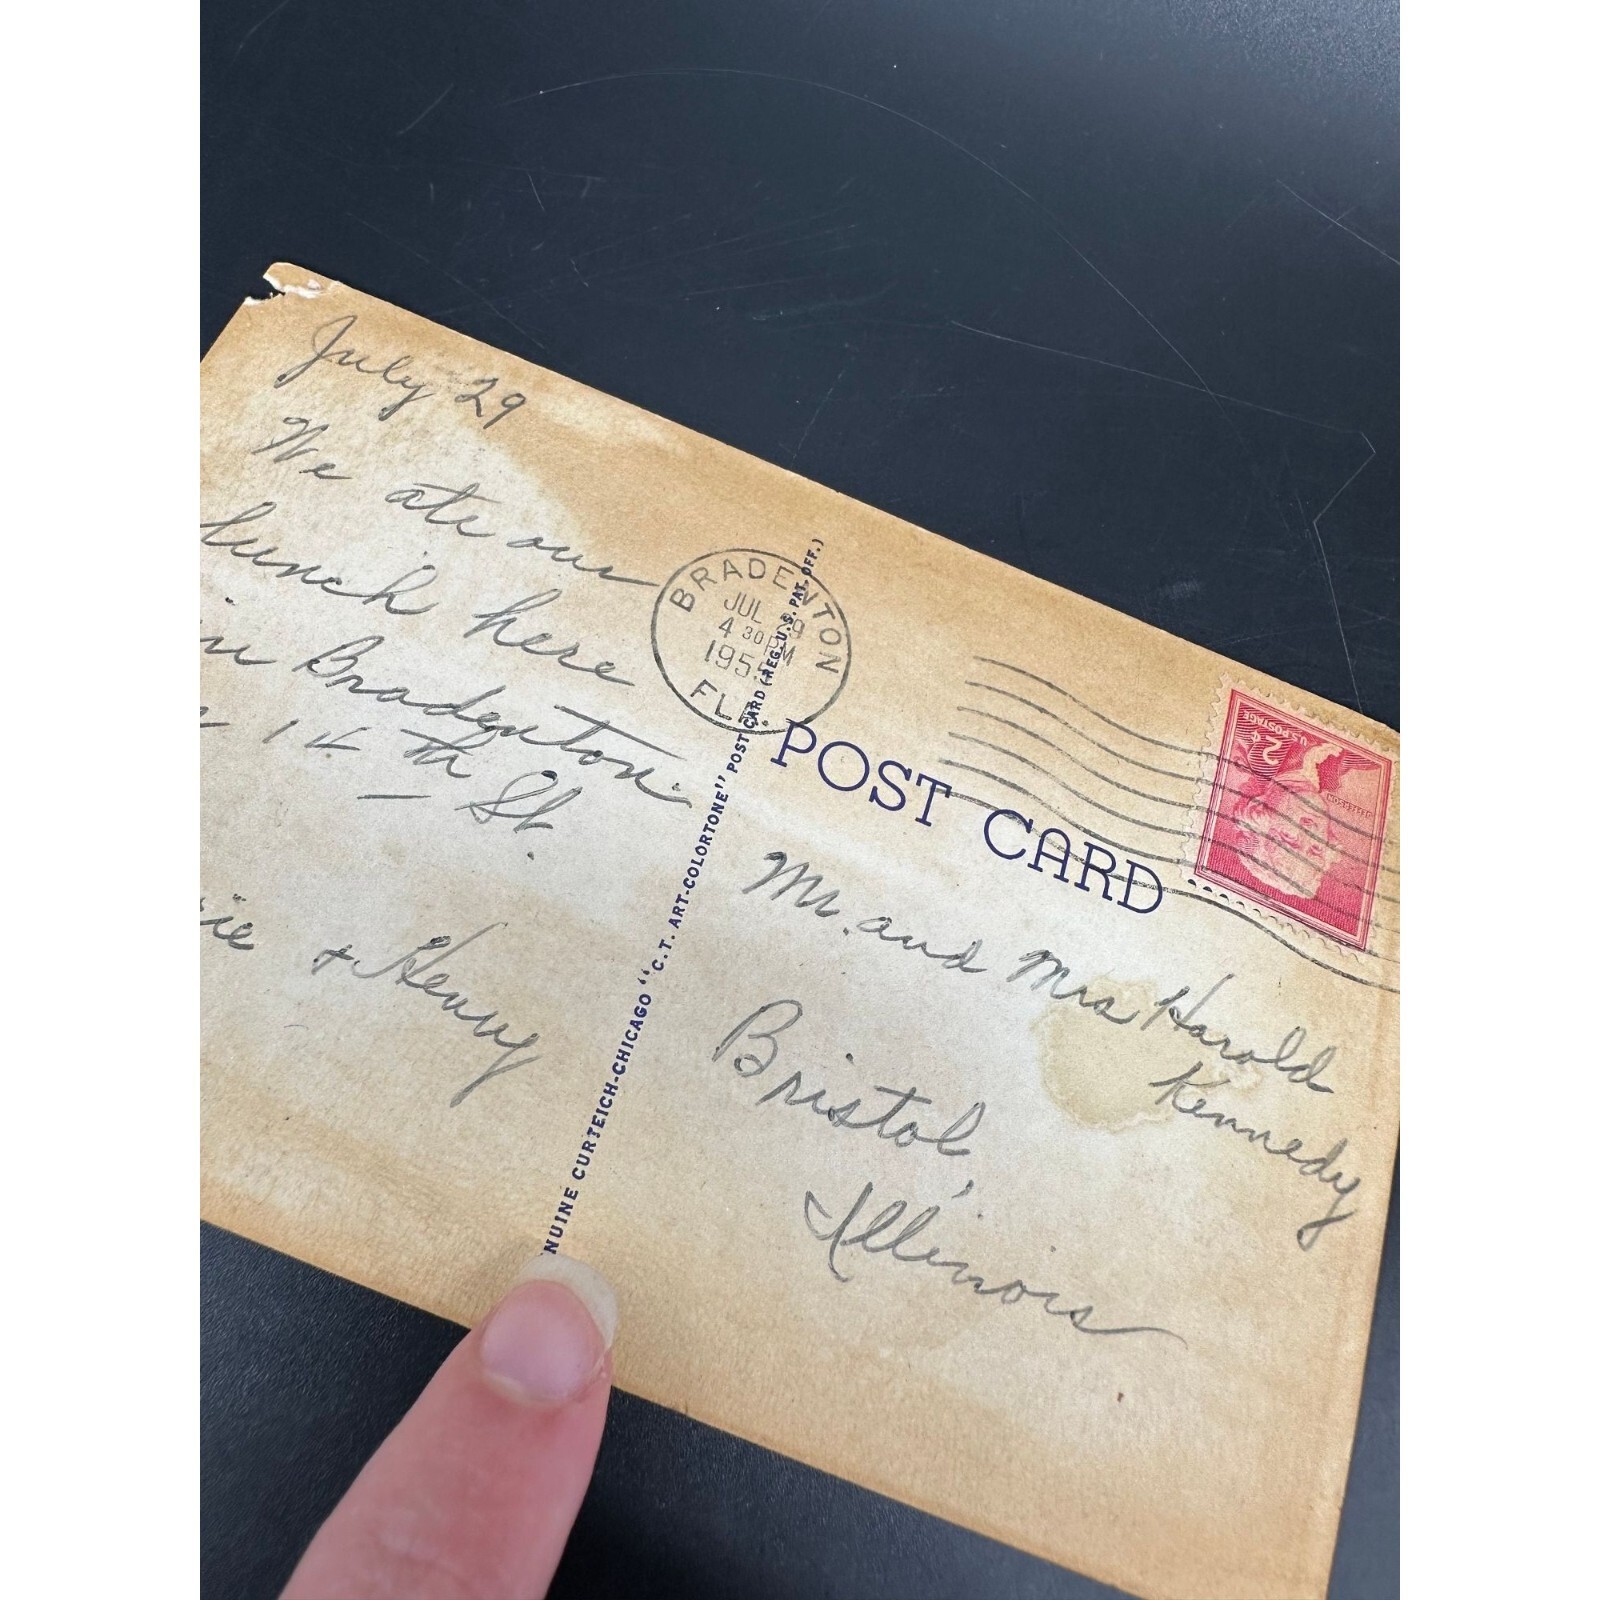 July 29
We ate our
lunch here
in Bradenton
14 th St.
& Henny
BRADENTON
JUL 29
4 30 PM
195
FLA.
NUINE CURTEICH-CHICAGO "C.T. ART-COLORTONE" POST CARD (REG. U.S. PAT. OFF.)
POST CARD
U.S. POSTAGE
2¢
JEFFERSON
Mr. and Mrs Harold
Kennedy
Bristol,
Illinois